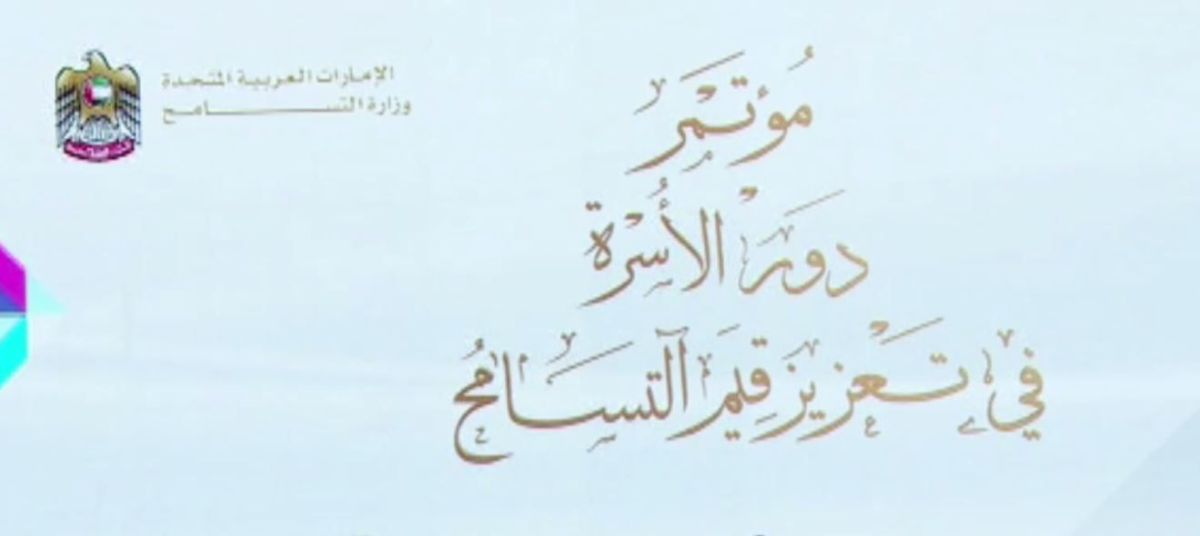 الإمارات العربية المتحدة
وزارة التسامح
مؤتمر
دور الأسرة
في تعزيز قيم التسامح